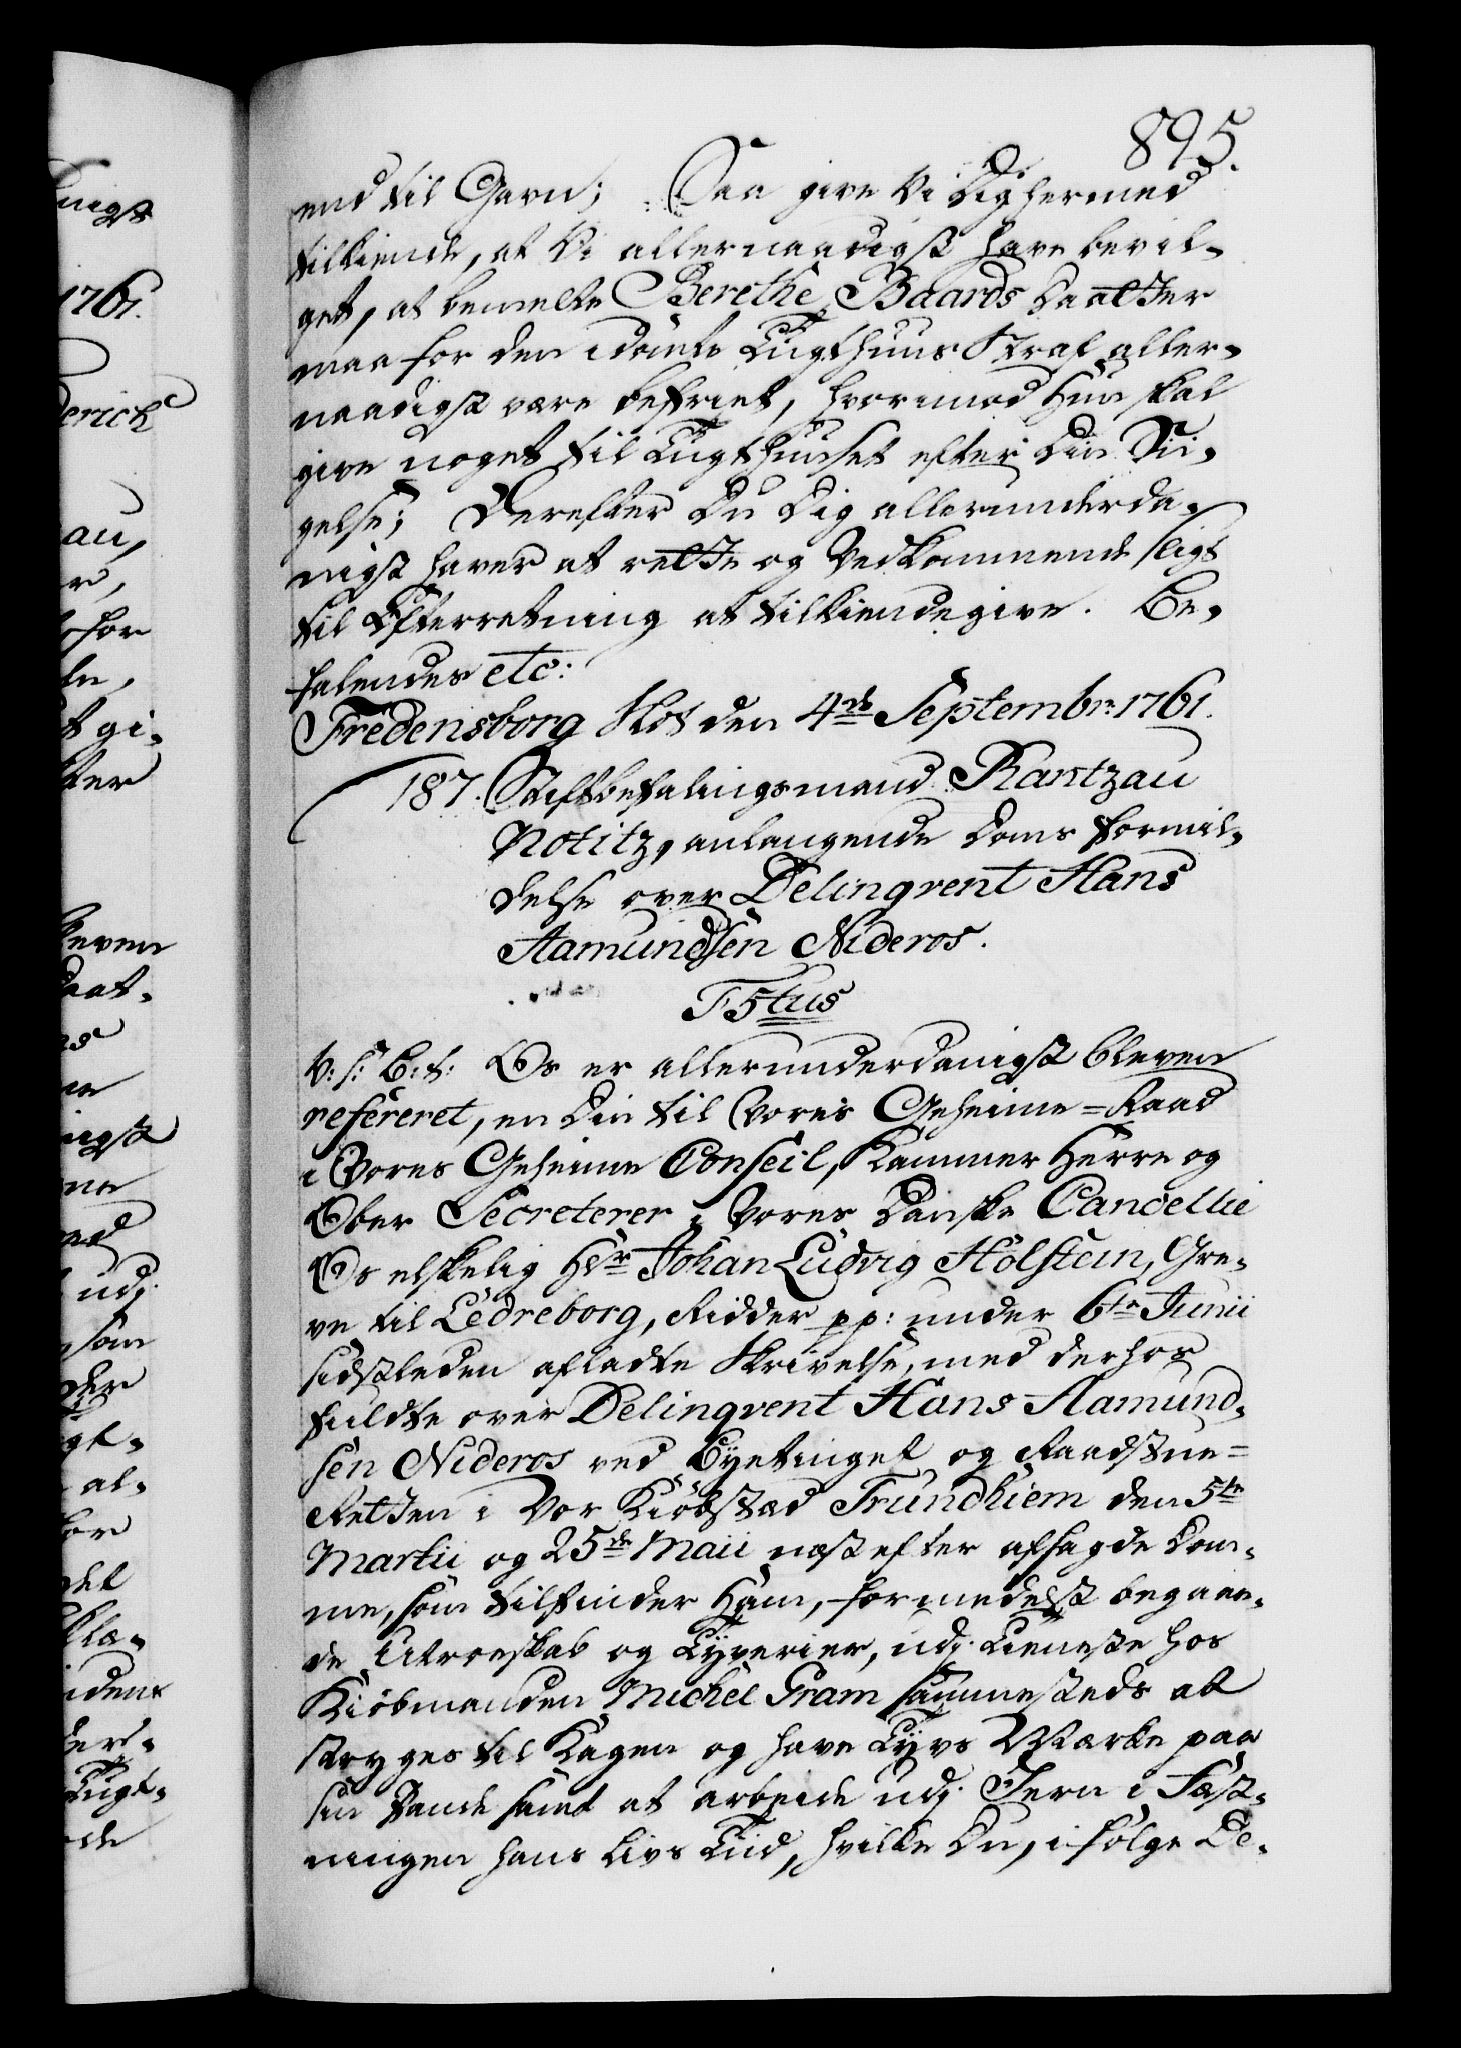 895.
end til Garn; Saa give Vi Dig hermed
tilkiende, at Vi allernaadigst have bevil-
get, at bemelte Berethe Baards Daatter
maa for den idömte Tugthuus Straf aller-
naadigst være befriet, hvorimod Hun skal
give noget til Tugthuuset efter Din Sii-
gelse; Derefter Du Dig allerunderda-
nigst haver at rette og Vedkommende sligt
til Efterretning at tilkiendegive. Be-
falendes etc:
Fredensborg Slot den 4de Septembr: 1761.
187. Stiftbefalingsmand Rantzau
Notitz, anlangende Doms Formil-
delse over Delinqvent Hans
Aamundsen Nideros.
F5tus
V: s: B: t: Os er allerunderdanigst bleven
refereret, en Din til Vores Geheime-Raad
i Vores Geheime Conseil, Kammer Herre og
Ober Secreterer i Vores Danske Cancellie
Os elskelig Hr Johan Ludvig Holstein, Gre-
ve til Ledreborg, Ridder pp: under 6te Junii
sidstleden afladte Skrivelse, med derhos
fuldte over Delinqvent Hans Aamund-
sen Nideros ved Byetinget og Raadstue-
Retten i Vor Kiöbstæd Trundhiem den 5te
Martii og 25de Maii næstefter afsagde Dom-
me, som tilfinder Ham, formedelst begaae-
de Utroeskab og Tyverier, udj Tieneste hos
Kiöbmanden Michel Gram sammesteds at
stryges til Kagen og have Tyvs Mærke paa
sin Pande samt at arbeide udj Jern i Fæst-
ningen hans Livs Tiid, hvilke Du, i fölge De-